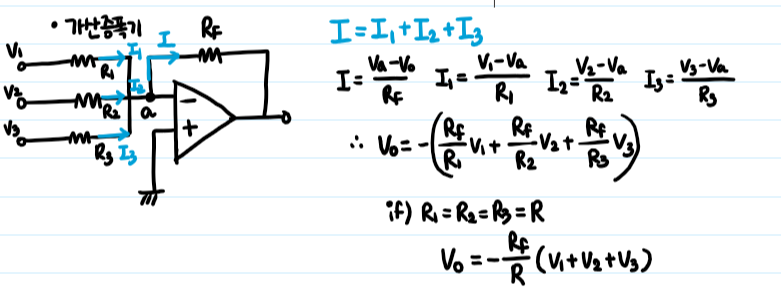 • 가산증폭기
V₁
R₁
I₁
I
R_F
V₂
R₂
I₂
a
V₃
R₃
I₃
−
+
I = I₁ + I₂ + I₃
I = (Va − Vo)/R_F  I₁ = (V₁ − Va)/R₁  I₂ = (V₂ − Va)/R₂  I₃ = (V₃ − Va)/R₃
∴ Vo = −(R_f/R₁ V₁ + R_f/R₂ V₂ + R_f/R₃ V₃)
if) R₁ = R₂ = R₃ = R
Vo = − R_f/R (V₁ + V₂ + V₃)